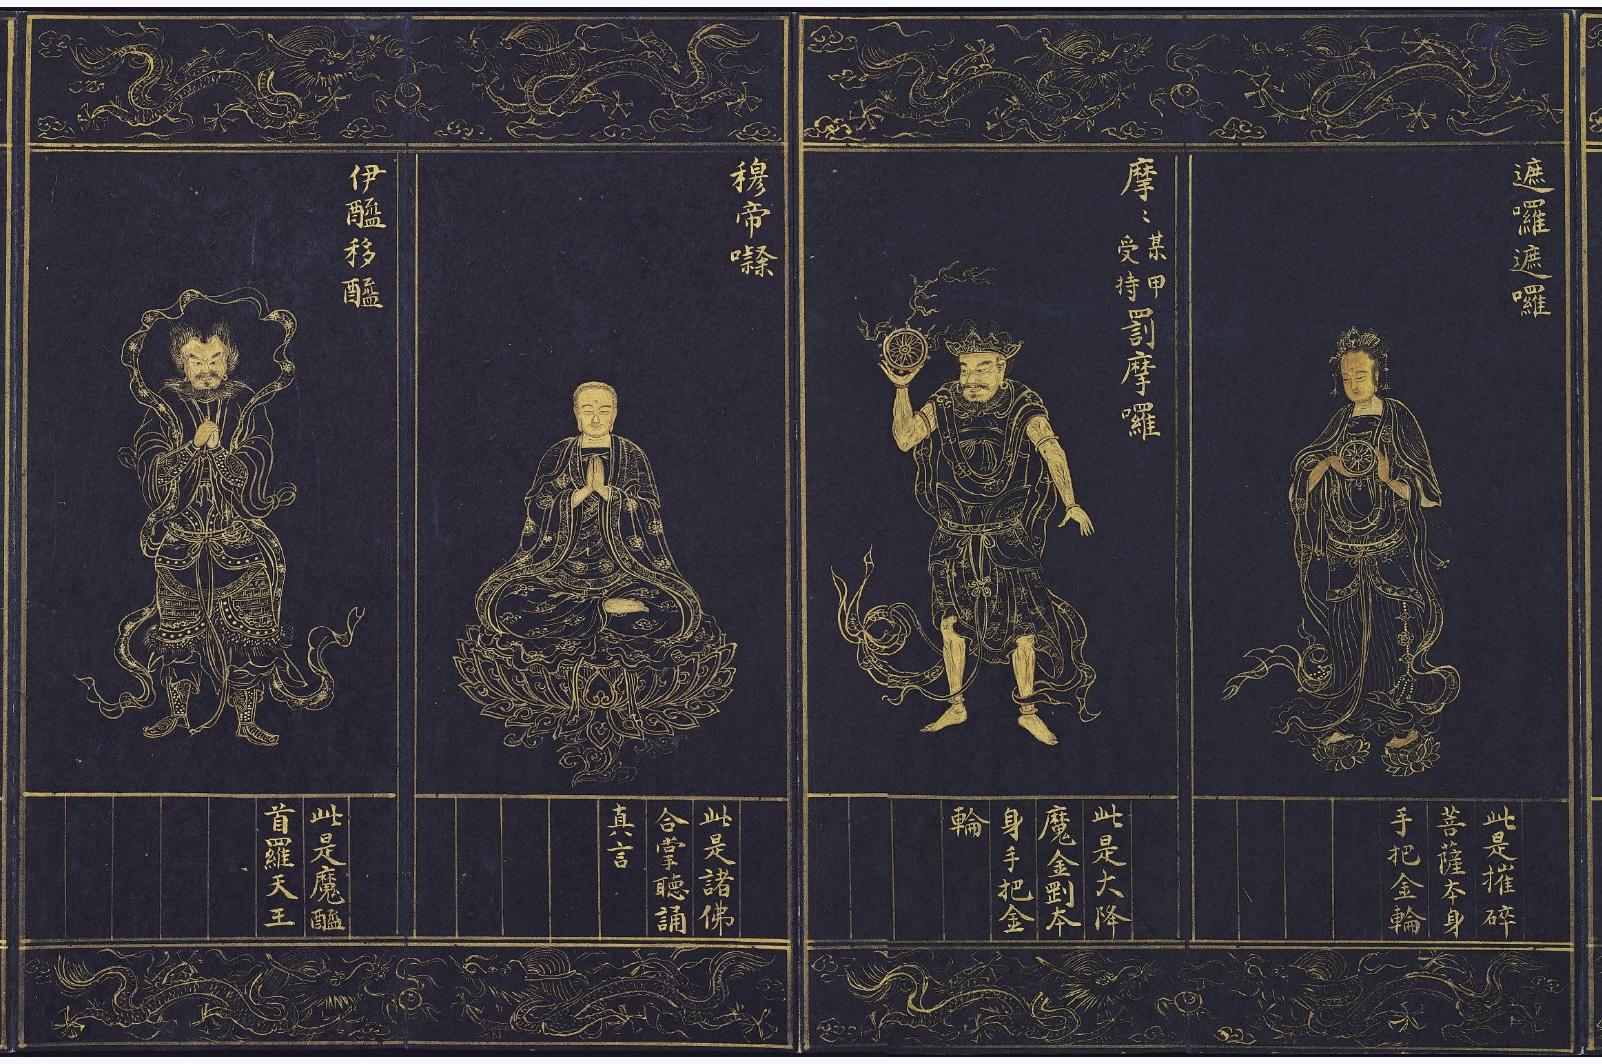 遮囉遮囉
此是摧碎
菩薩本身
手把金輪
摩〻
某甲
受持
罰摩囉
此是大降
魔金剛本
身手把金
輪
穆帝㘑
此是諸佛
合掌聽誦
真言
伊醯移醯
此是魔醯
首羅天王